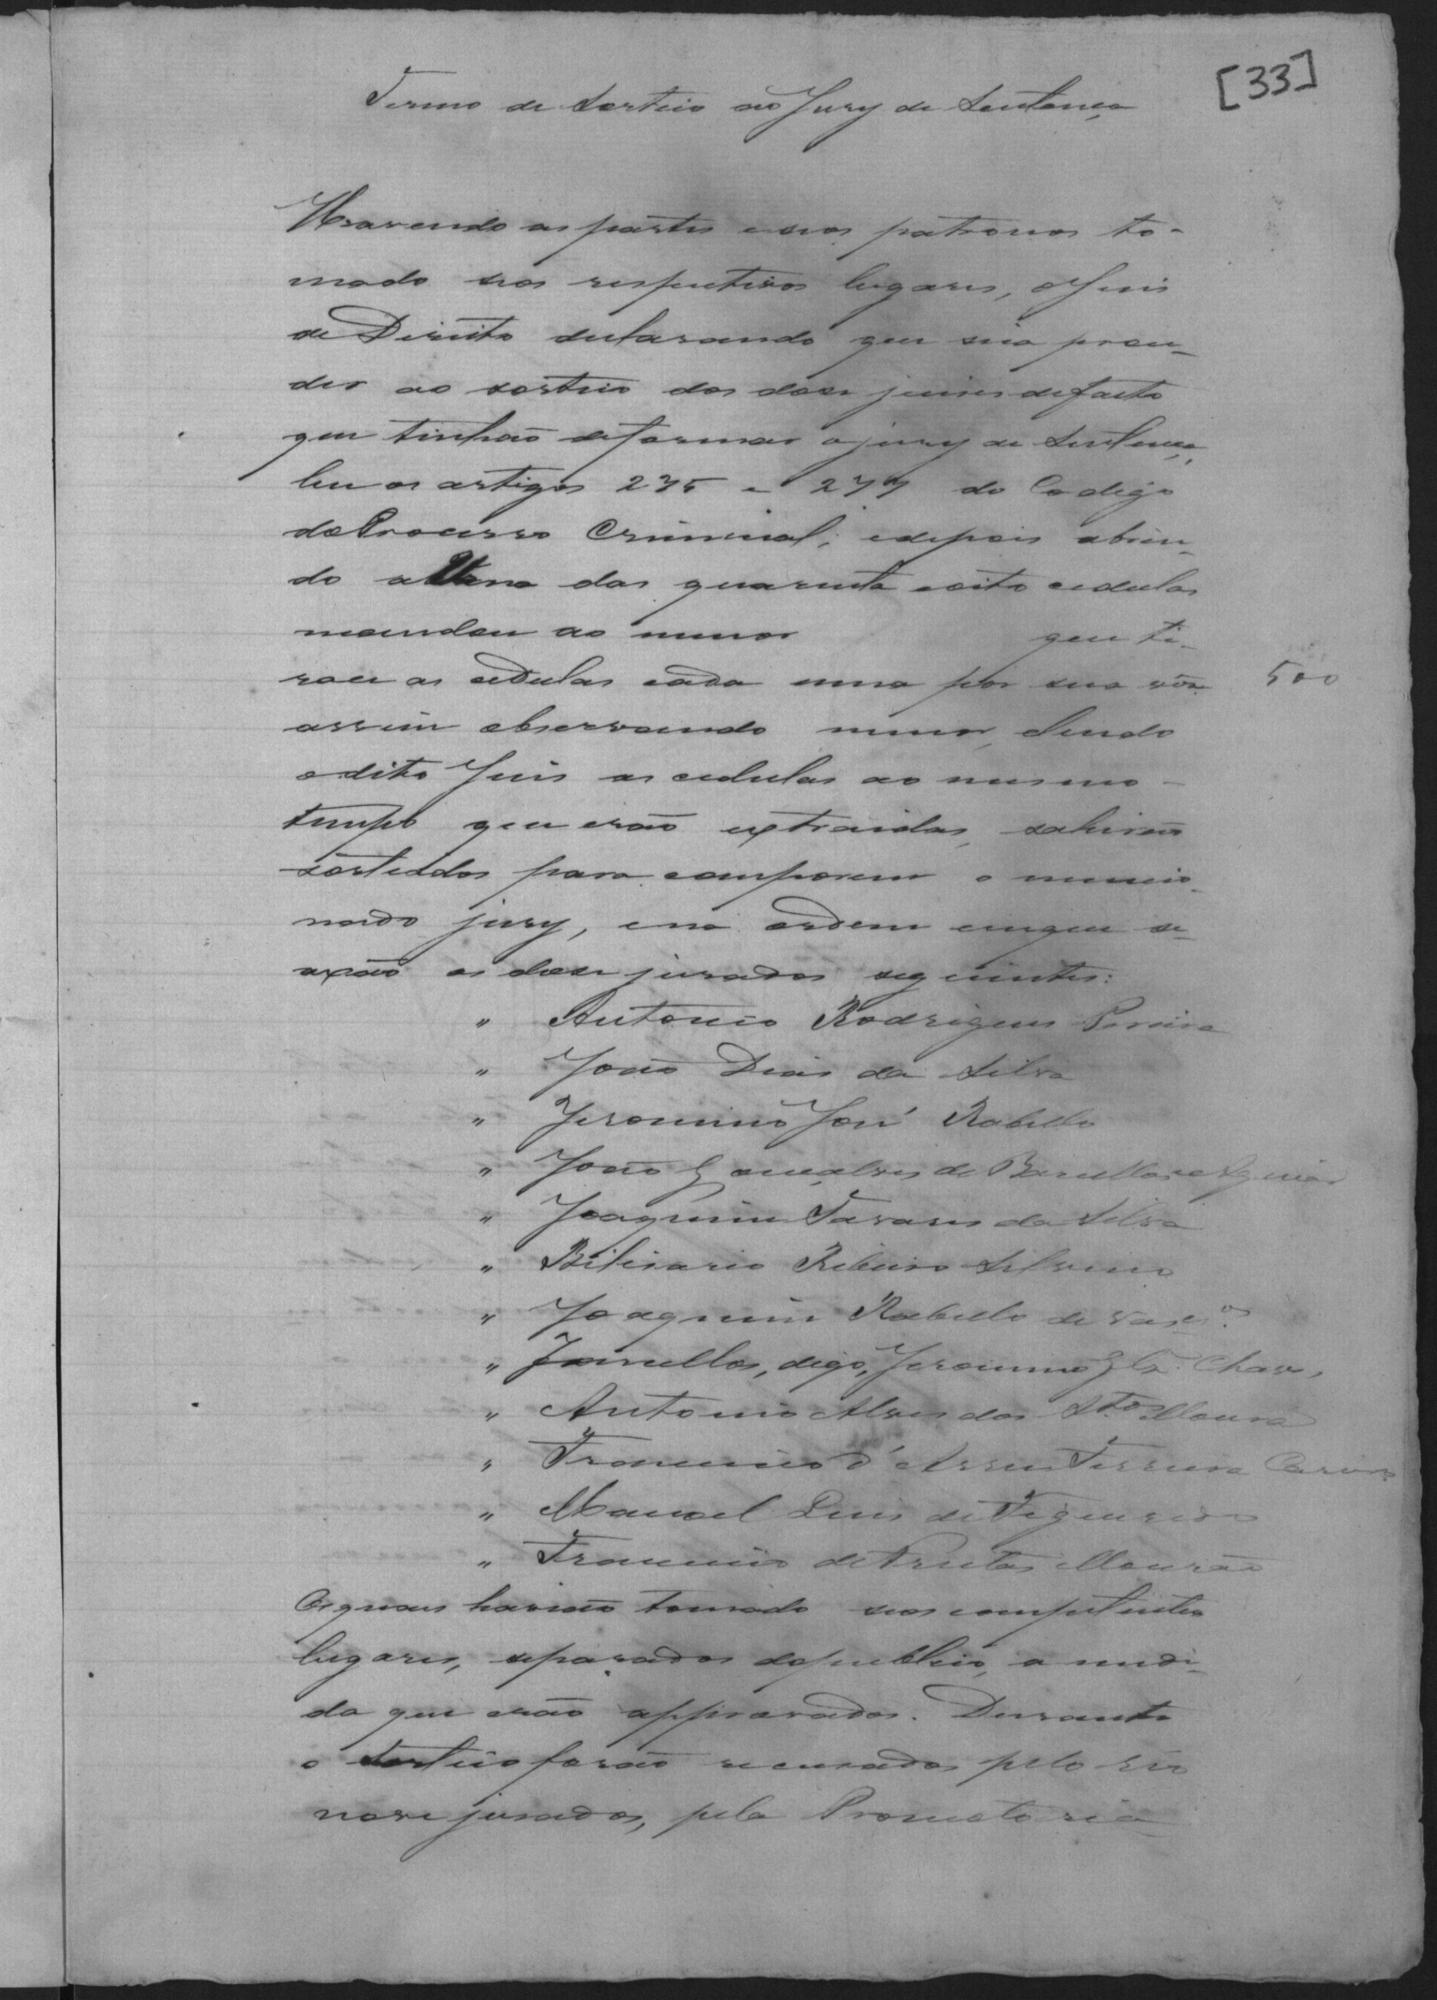 [33]
Termo de sorteio do Jury de Sentença
Havendo as partes e seos patronos to-
mado seos respectivos lugares, o Juis
de Direito declarando que hia proce-
der ao sorteio dos doze juizes de facto
que tinhão de formar o jury de Sentença,
leu os artigos 275 e 277 do Codigo
do Processo Criminal; e depois abrin-
do a Urna das quarenta e oito cedulas
mandou ao menor que ti-
rou as cedulas cada uma por sua vez 500
assim observando menor, e lendo
o dito Juis as cedulas ao mesmo
tempo que erão extraidas, sahirão
sorteados para comporem o mencio-
nado jury, e na ordem em que se
achão os doze jurados seguintes:
" Antonio Rodrigues Pereira
" João Dias da Silva
" Jeronimo José Rabello
" João Gonçalves de Barcellos e Aguiar
" Joaquim Tavares da Silva
" Bilisario Ribeiro Silvino
" Joaquim Rabello de Vasc.os
" digo, Jeronimo Chaves,
" Antonio Alves dos S.tos Moura
" Francisco d'Assis Ferreira
" Manoel Luis de Figueredo
" Francisco de Freitas Mourão
Os quaes havião tomado seos competentes
lugares, separados do publico, a medi-
da que erão approvados. Durante
o sorteio forão recusados pelo réo
nove jurados, pela Promotoria